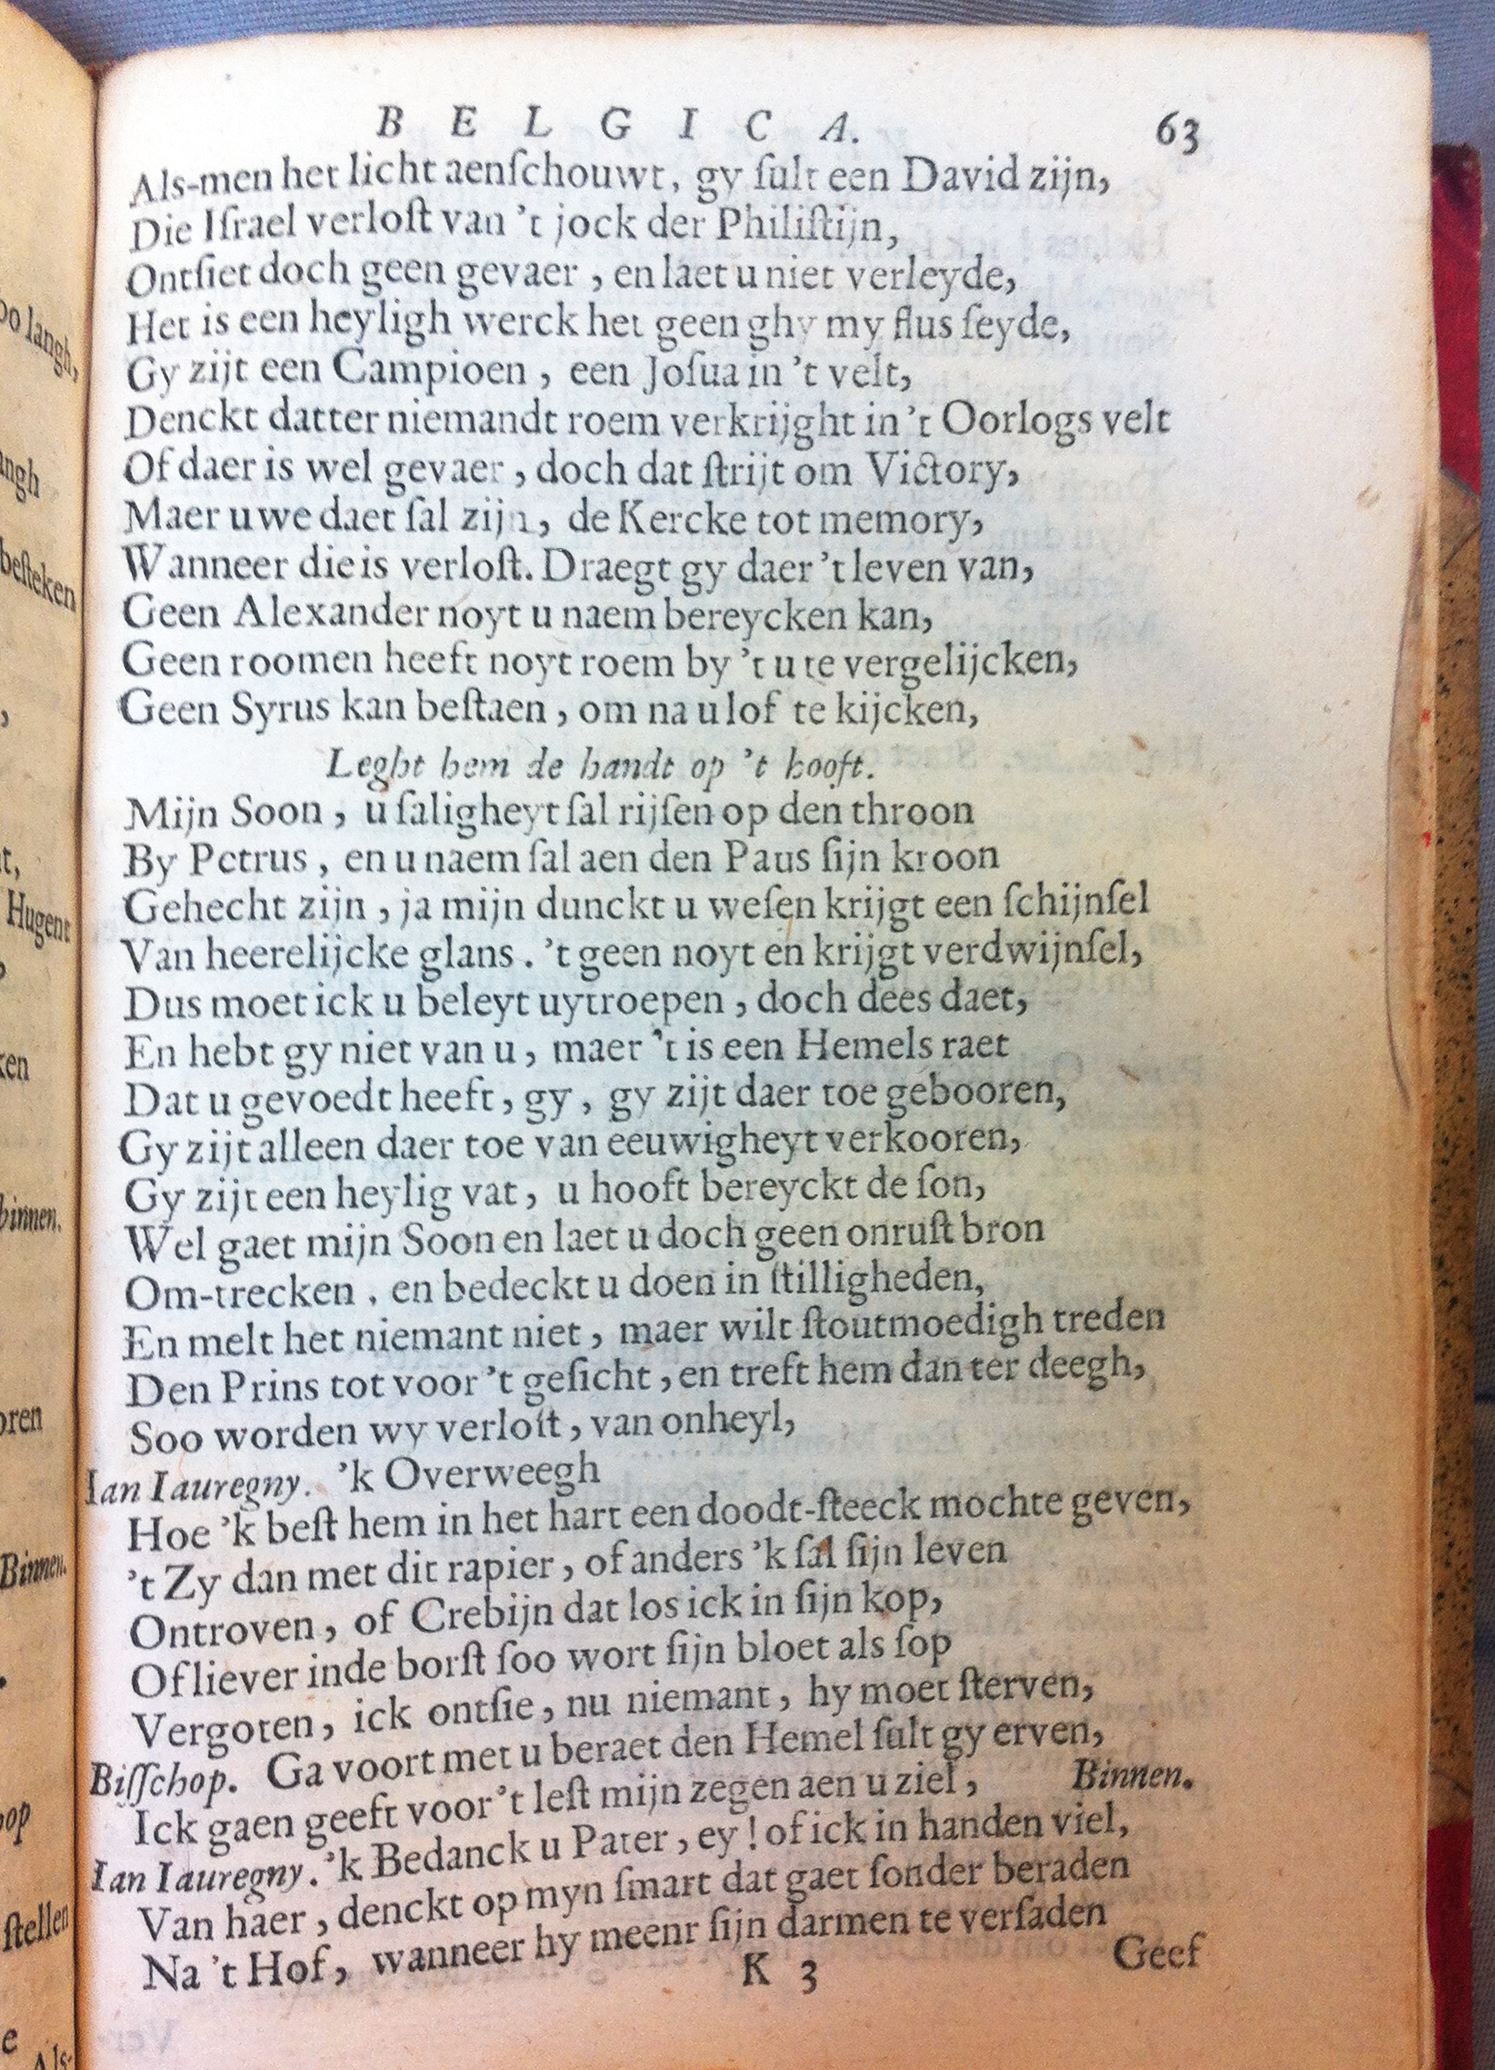 BELGICA. 63
Als-men het licht aenſchouwt, gy ſult een David zijn,
Die Iſrael verloſt van 't jock der Philiſtijn,
Ontſiet doch geen gevaer, en laet u niet verleyde,
Het is een heyligh werck het geen ghy my flus ſeyde,
Gy zijt een Campioen, een Joſua in 't velt,
Denckt datter niemandt roem verkrijght in 't Oorlogs velt
Of daer is wel gevaer, doch dat ſtrijt om Victory,
Maer uwe daet ſal zijn, de Kercke tot memory,
Wanneer die is verloſt. Draegt gy daer 't leven van,
Geen Alexander noyt u naem bereycken kan,
Geen roomen heeft noyt roem by 't u te vergelijcken,
Geen Syrus kan beſtaen, om na u lof te kijcken,
Leght hem de handt op 't hooft.
Mijn Soon, u ſaligheyt ſal rijſen op den throon
By Petrus, en u naem ſal aen den Paus ſijn kroon
Gehecht zijn, ja mijn dunckt u weſen krijgt een ſchijnſel
Van heerelijcke glans. 't geen noyt en krijgt verdwijnſel,
Dus moet ick u beleyt uytroepen, doch dees daet,
En hebt gy niet van u, maer 't is een Hemels raet
Dat u gevoedt heeft, gy, gy zijt daer toe gebooren,
Gy zijt alleen daer toe van eeuwigheyt verkooren,
Gy zijt een heylig vat, u hooft bereyckt de ſon,
Wel gaet mijn Soon en laet u doch geen onruſt bron
Om-trecken, en bedeckt u doen in ſtilligheden,
En melt het niemant niet, maer wilt ſtoutmoedigh treden
Den Prins tot voor 't geſicht, en treft hem dan ter deegh,
Soo worden wy verloſt, van onheyl,
Ian Iauregny. 'k Overweegh
Hoe 'k beſt hem in het hart een doodt-ſteeck mochte geven,
't Zy dan met dit rapier, of anders 'k ſal ſijn leven
Ontroven, of Crebijn dat los ick in ſijn kop,
Of liever inde borſt ſoo wort ſijn bloet als ſop
Vergoten, ick ontſie, nu niemant, hy moet ſterven,
Biſſchop. Ga voort met u beraet den Hemel ſult gy erven,
Ick gaen geeft voor 't leſt mijn zegen aen u ziel, Binnen.
Ian Iauregny. 'k Bedanck u Pater, ey! of ick in handen viel,
Van haer, denckt op myn ſmart dat gaet ſonder beraden
Na 't Hof, wanneer hy meenr ſijn darmen te verſaden
K 3 Geef